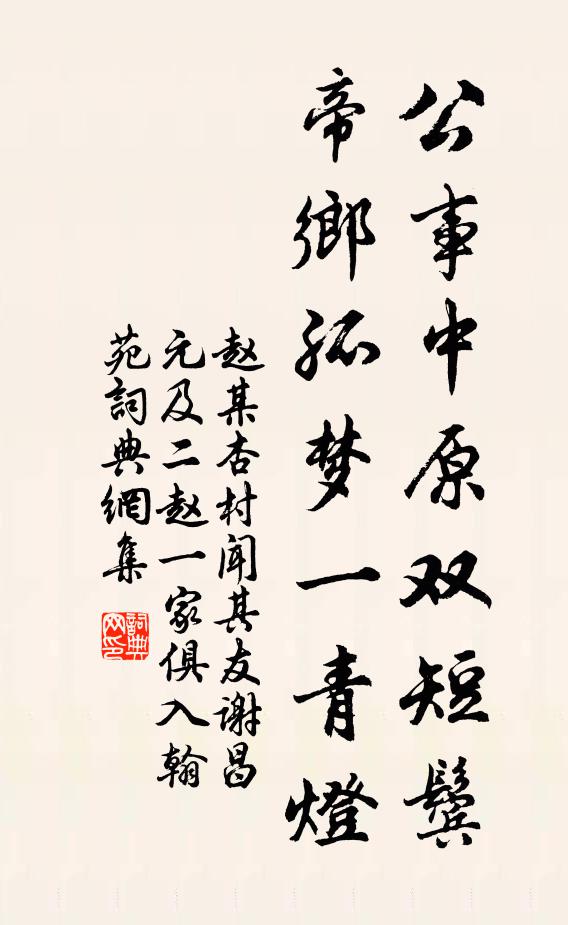 公事中原双短鬓
帝鄉孤梦一青燈
赵某杏村闻其友谢昌
元及二赵一家俱入翰
苑詞典網集
詞典网印